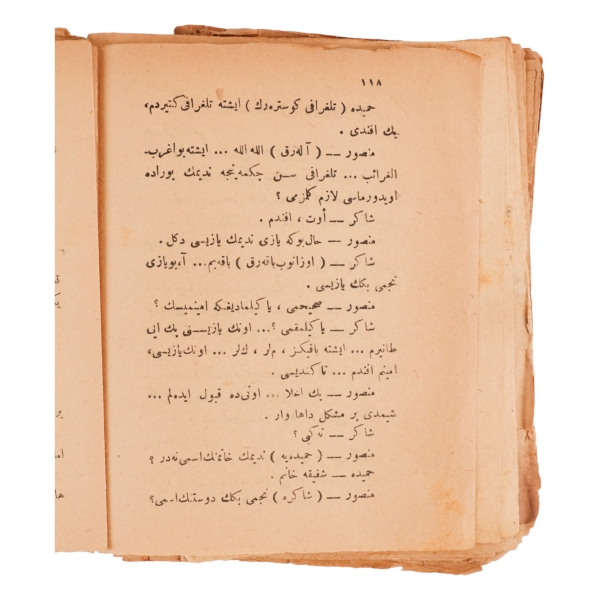 ١١٨
حمیده ( تلغرافی كوستره‌رك ) ایشته تلغرافی كتیردم،
بك افندی .
منصور — ( آله‌رق ) الله الله ... ایشته بو اغرب
الغرائب ... تلغرافی سـن چكمه‌ینجه ندیمك بوراده
اویدورماسی لازم كلمزمی ؟
شاكر — أوت ، افندم .
منصور — حال بوكه یازی ندیمك یازیسی دكل .
شاكر — ( اوزانوب باقه‌رق ) باقه‌یم... آ، بو یازی
نجمی بكك یازیسی .
منصور — صحیحمی ، یاكیلمادیغكه امینمیسك ؟
شاكر — یاكیلمقمی ؟... اونك یازیسـنی پك ایی
طانیرم ... ایشته باقیكز ، م‌لر ، ك‌لر ... اونك یازیسی،
امینم افندم ... تا كندیسی .
منصور — پك اعلا ... اونی ده قبول ایده‌لم ...
شیمدی بر مشكل داها وار .
شاكر — نه كبی ؟
منصور — ( حمیده‌یه ) ندیمك خانمنك اسمی نه‌در ؟
حمیده — شفیقه خانم .
منصور — ( شاكره ) نجمی بكك دوستنك اسمی؟